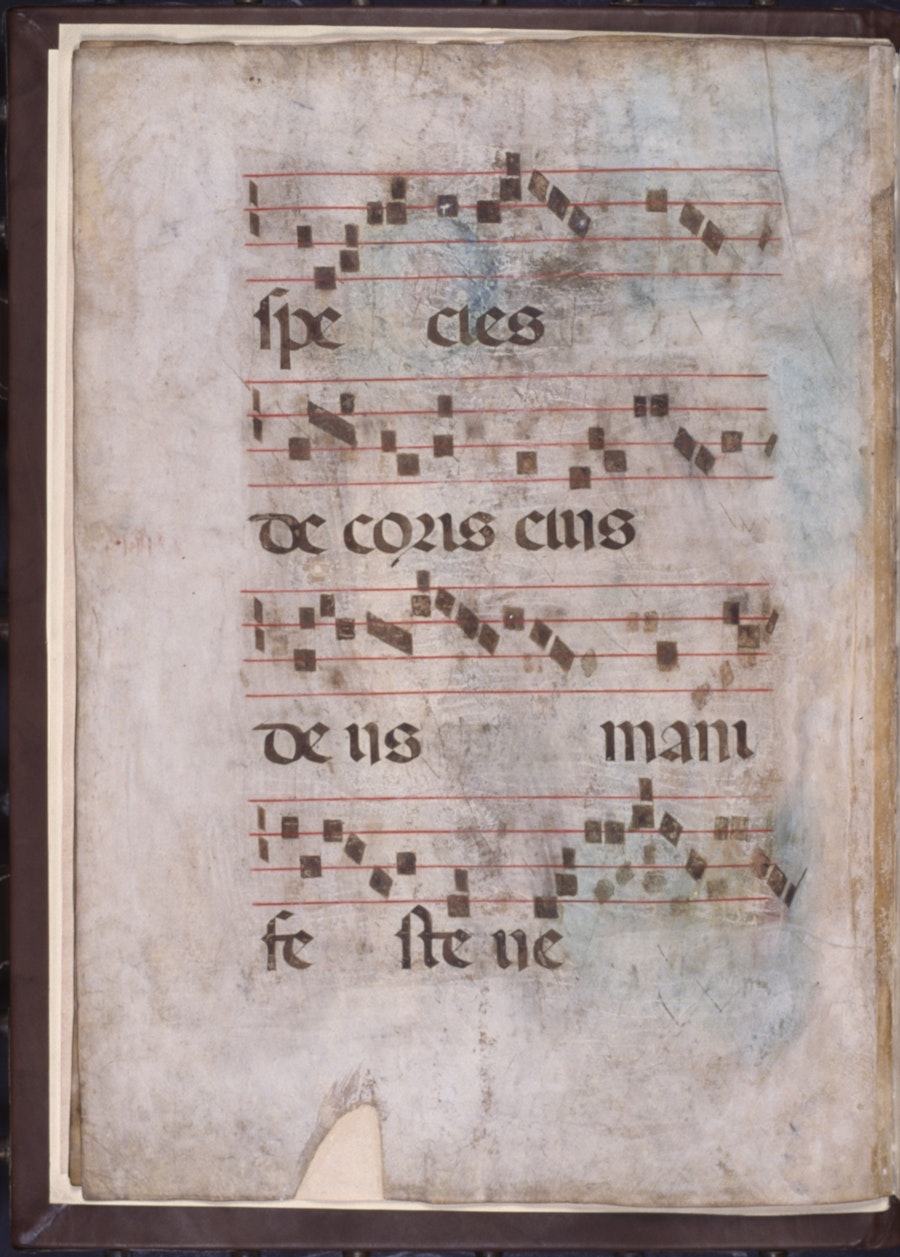 spe cies
de coris eius
de us mani
fe ste ue